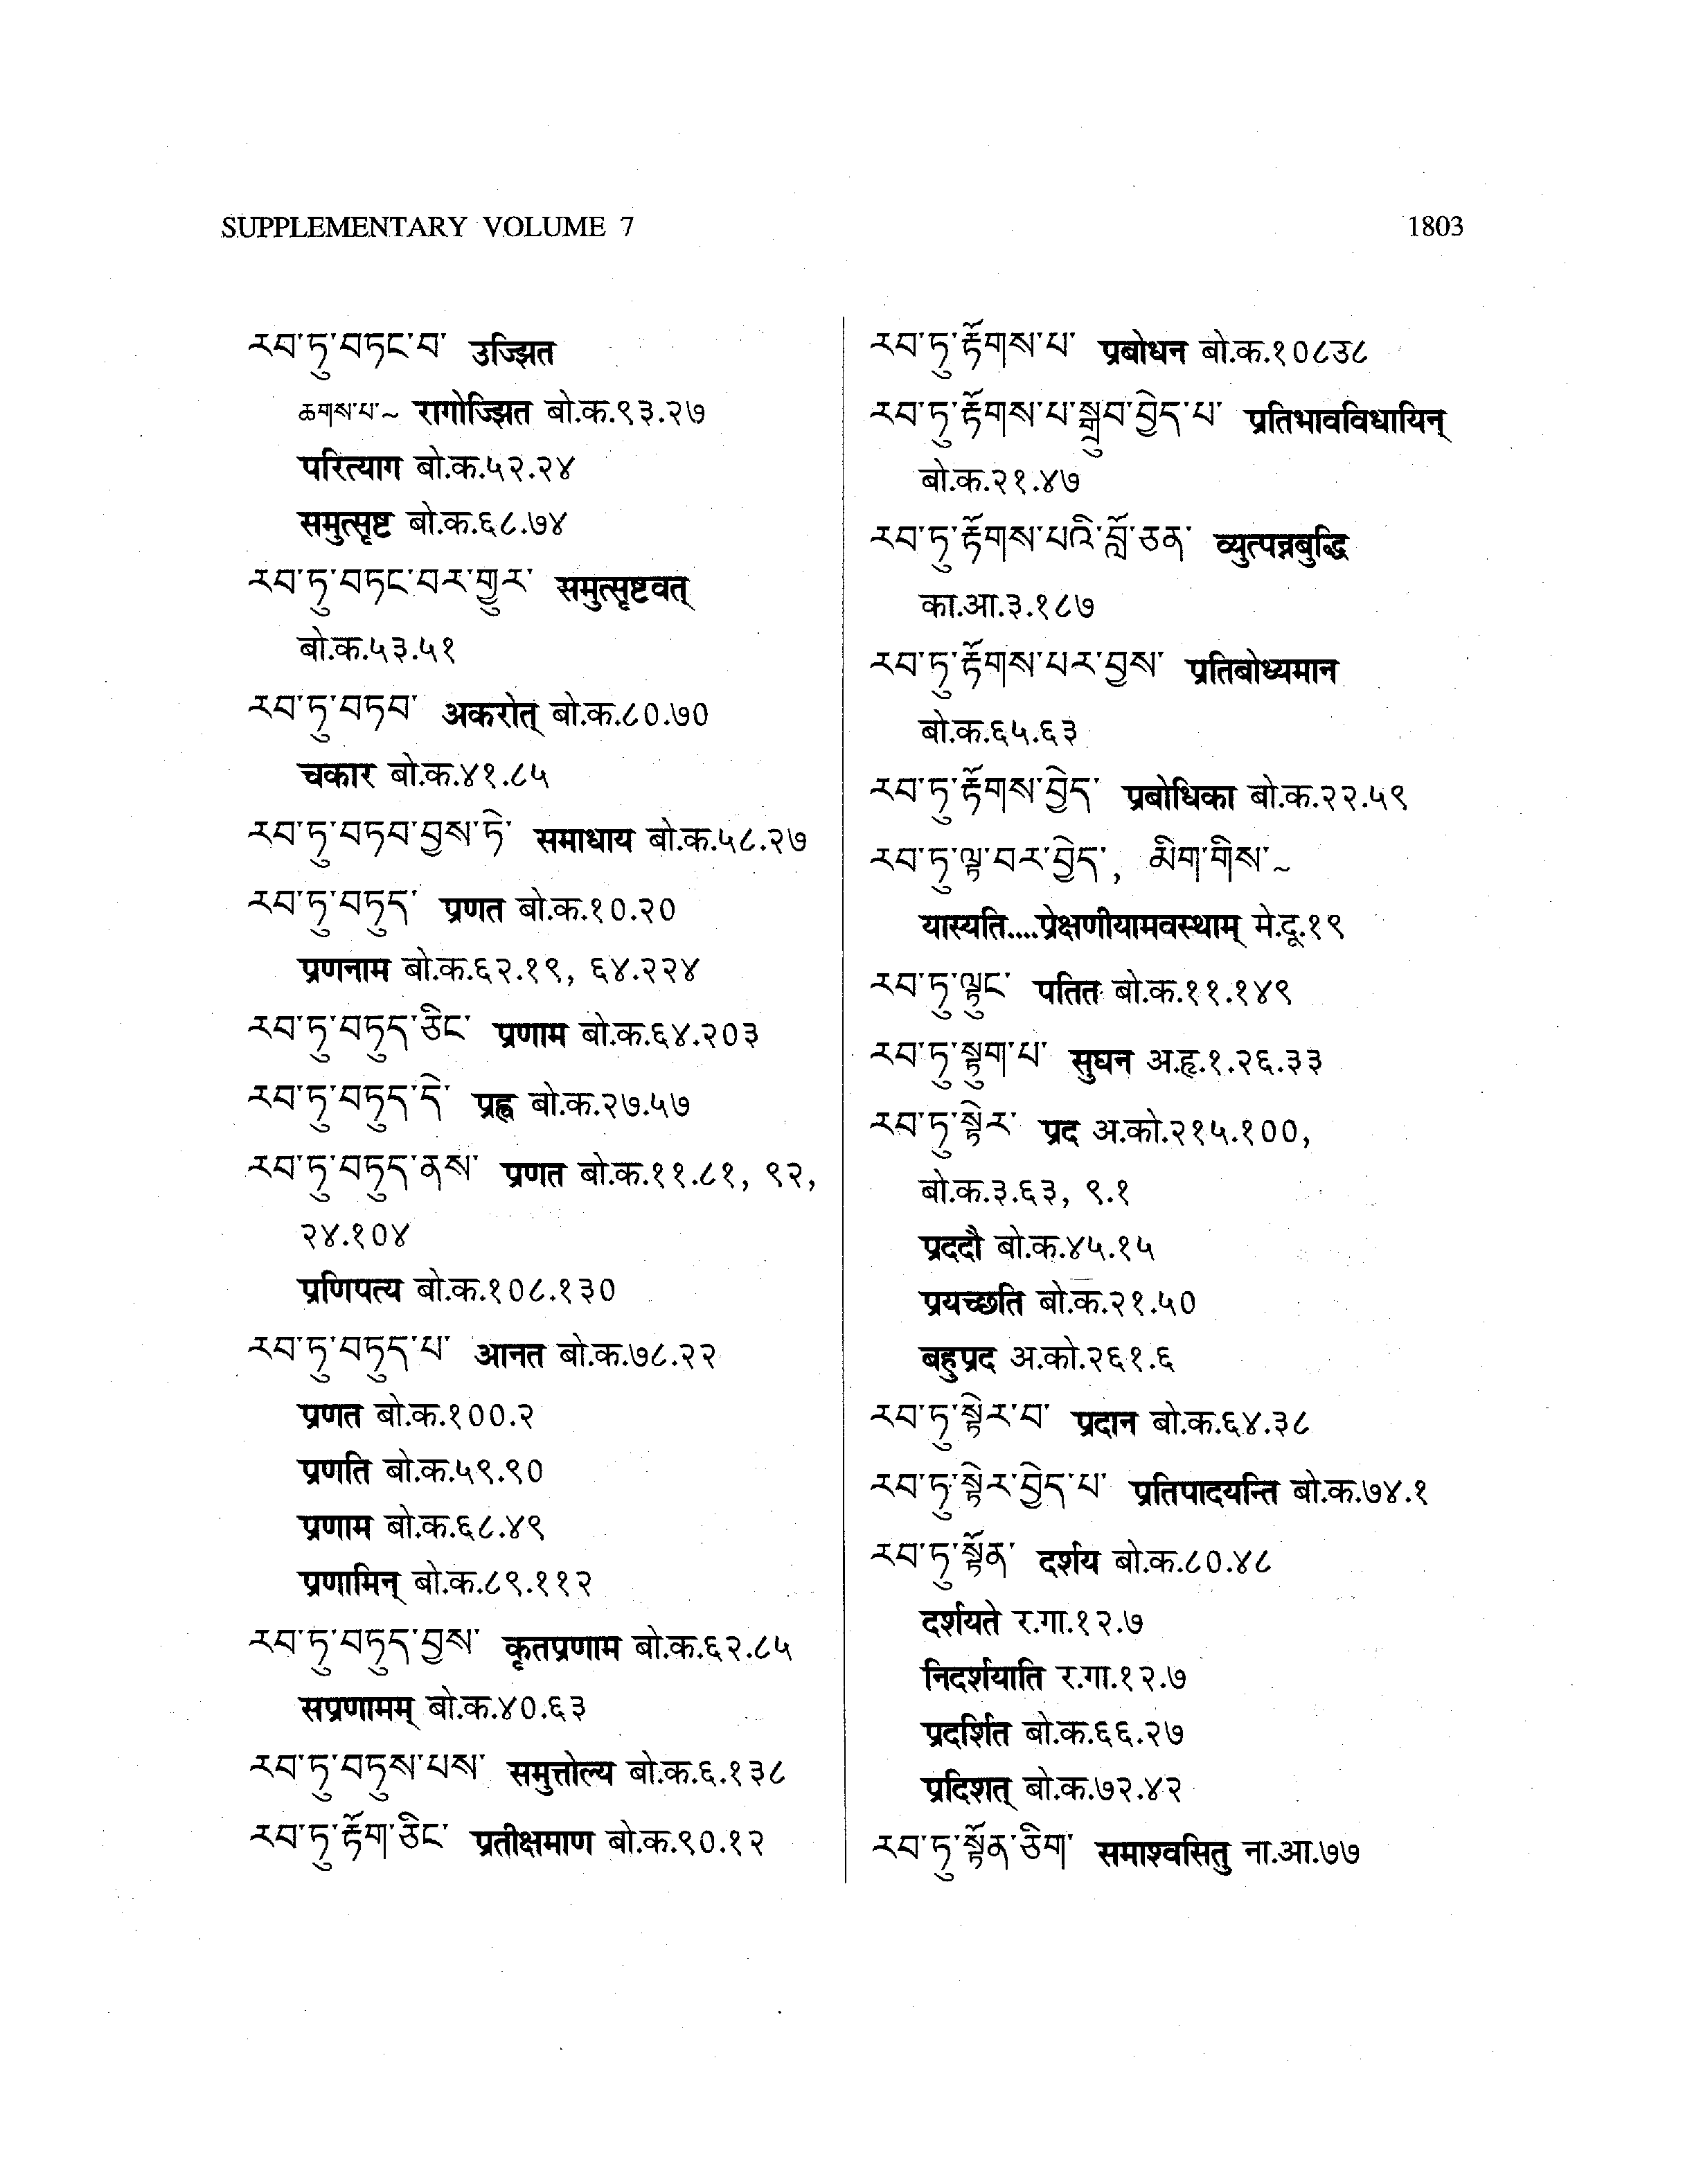 SUPPLEMENTARY VOLUME 7 1803
རབ་ཏུ་བཏང་བ་ उज्झित
ཆགས་པ་~ रागोज्झित बो.क.९३.२७
परित्याग बो.क.५२.२४
समुत्सृष्ट बो.क.६८.७४
རབ་ཏུ་བཏང་བར་གྱུར་ समुत्सृष्टवत्
बो.क.५३.५१
རབ་ཏུ་བཏབ་ अकरोत् बो.क.८०.७०
चकार बो.क.४१.८५
རབ་ཏུ་བཏབ་བྱས་ཏེ་ समाधाय बो.क.५८.२७
རབ་ཏུ་བཏུད་ प्रणत बो.क.१०.२०
प्रणनाम बो.क.६२.१९, ६४.२२४
རབ་ཏུ་བཏུད་ཅིང་ प्रणाम बो.क.६४.२०३
རབ་ཏུ་བཏུད་དེ་ प्रह्व बो.क.२७.५७
རབ་ཏུ་བཏུད་ནས་ प्रणत बो.क.११.८१, ९२,
२४.१०४
प्रणिपत्य बो.क.१०८.१३०
རབ་ཏུ་བཏུད་པ་ आनत बो.क.७८.२२
प्रणत बो.क.१००.२
प्रणति बो.क.५९.९०
प्रणाम बो.क.६८.४९
प्रणामिन् बो.क.८९.११२
རབ་ཏུ་བཏུད་བྱས་ कृतप्रणाम बो.क.६२.८५
सप्रणामम् बो.क.४०.६३
རབ་ཏུ་བཏུས་པས་ समुत्तोल्य बो.क.६.१३८
རབ་ཏུ་རྟོག་ཅིང་ प्रतीक्षमाण बो.क.९०.१२
རབ་ཏུ་རྟོགས་པ་ प्रबोधन बो.क.१०८उ८
རབ་ཏུ་རྟོགས་པ་སྒྲུབ་བྱེད་པ་ प्रतिभावविधायिन्
बो.क.२१.४७
རབ་ཏུ་རྟོགས་པའི་བློ་ཅན་ व्युत्पन्नबुद्धि
का.आ.३.१८७
རབ་ཏུ་རྟོགས་པར་བྱས་ प्रतिबोध्यमान
बो.क.६५.६३
རབ་ཏུ་རྟོགས་བྱེད་ प्रबोधिका बो.क.२२.५९
རབ་ཏུ་ལྟ་བར་བྱེད་, མིག་གིས་~
यास्यति....प्रेक्षणीयामवस्थाम् मे.दू.१९
རབ་ཏུ་ལྟུང་ पतित बो.क.११.१४९
རབ་ཏུ་སྟུག་པ་ सुघन अ.हृ.१.२६.३३
རབ་ཏུ་སྟེར་ प्रद अ.को.२१५.१००,
बो.क.३.६३, ९.१
प्रददौ बो.क.४५.१५
प्रयच्छति बो.क.२१.५०
बहुप्रद अ.को.२६१.६
རབ་ཏུ་སྟེར་བ་ प्रदान बो.क.६४.३८
རབ་ཏུ་སྟེར་བྱེད་པ་ प्रतिपादयन्ति बो.क.७४.१
རབ་ཏུ་སྟོན་ दर्शय बो.क.८०.४८
दर्शयते र.गा.१२.७
निदर्शयाति र.गा.१२.७
प्रदर्शित बो.क.६६.२७
प्रदिशत् बो.क.७२.४२
རབ་ཏུ་སྟོན་ཅིག་ समाश्वसितु ना.आ.७७